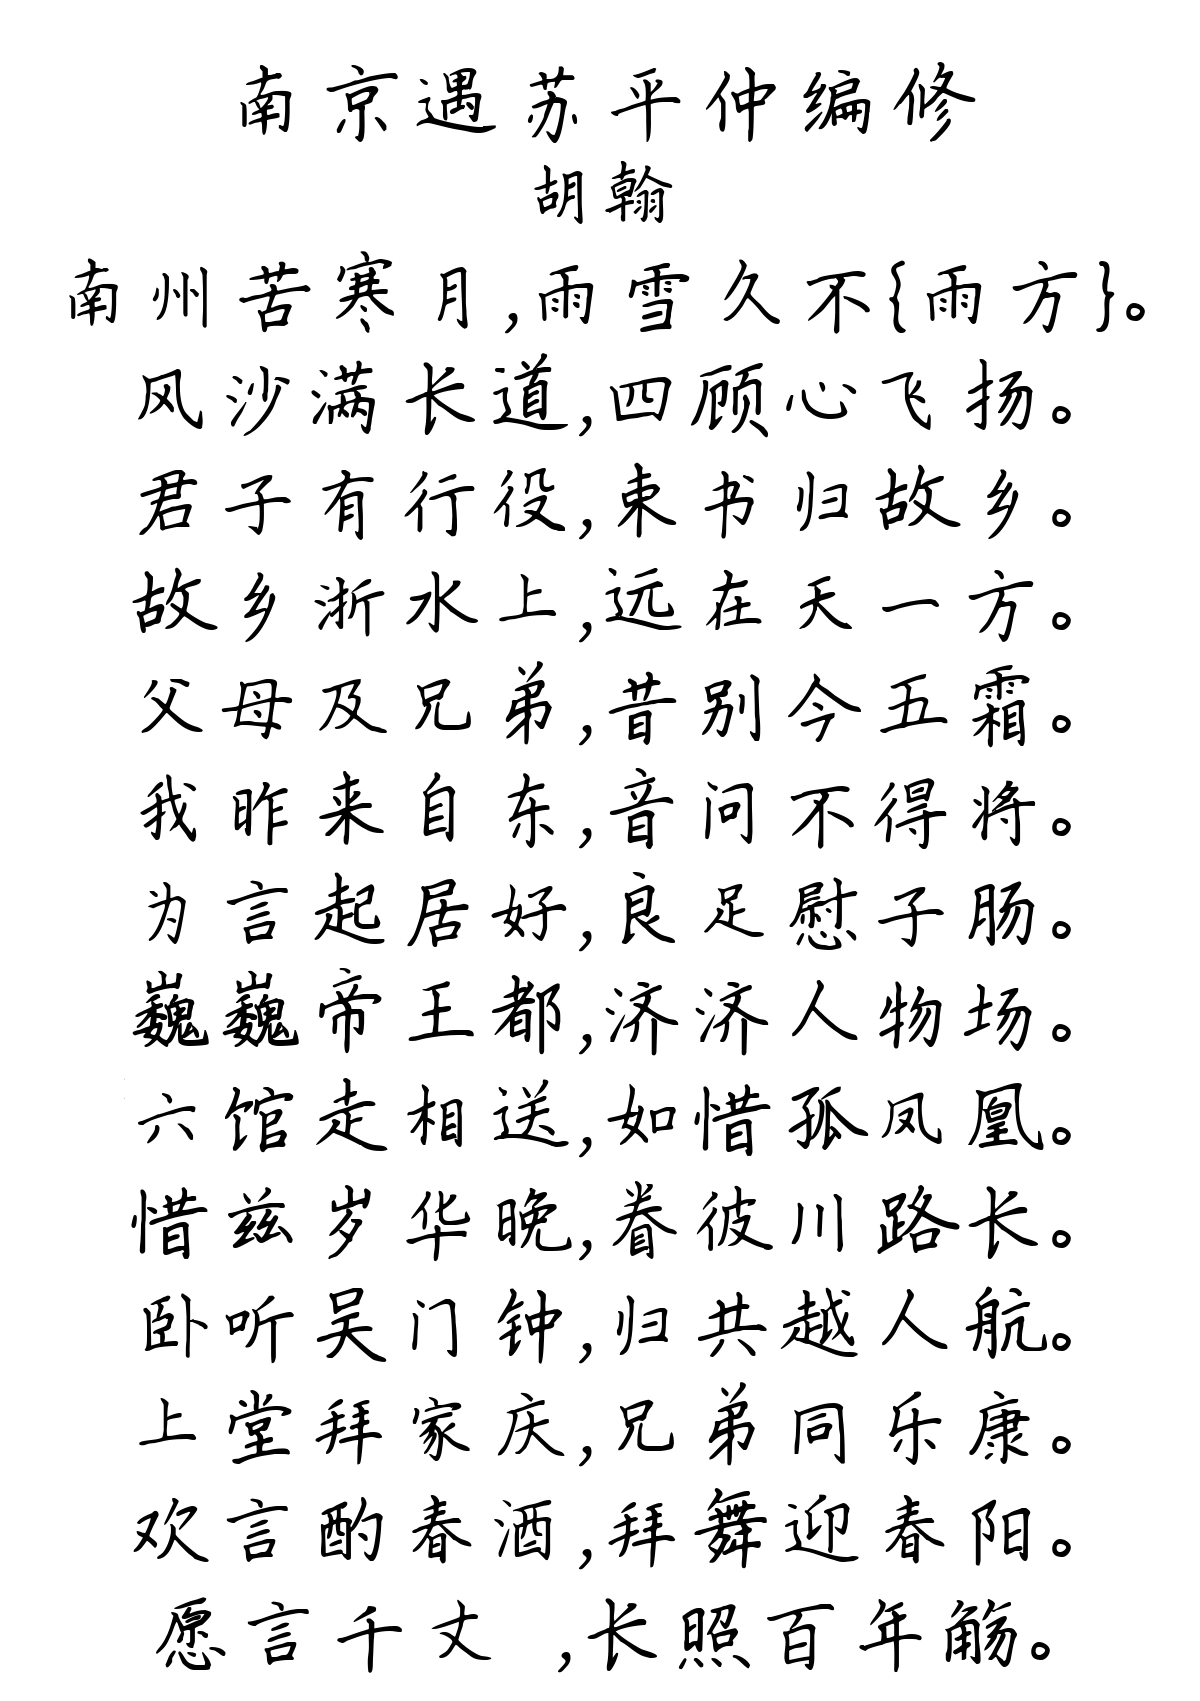 南京遇苏平仲编修
胡翰
南州苦寒月,雨雪久不{雨方}。
风沙满长道,四顾心飞扬。
君子有行役,束书归故乡。
故乡浙水上,远在天一方。
父母及兄弟,昔别今五霜。
我昨来自东,音问不得将。
为言起居好,良足慰子肠。
巍巍帝王都,济济人物场。
六馆走相送,如惜孤凤凰。
惜兹岁华晚,眷彼川路长。
卧听吴门钟,归共越人航。
上堂拜家庆,兄弟同乐康。
欢言酌春酒,拜舞迎春阳。
愿言千丈 ,长照百年觞。